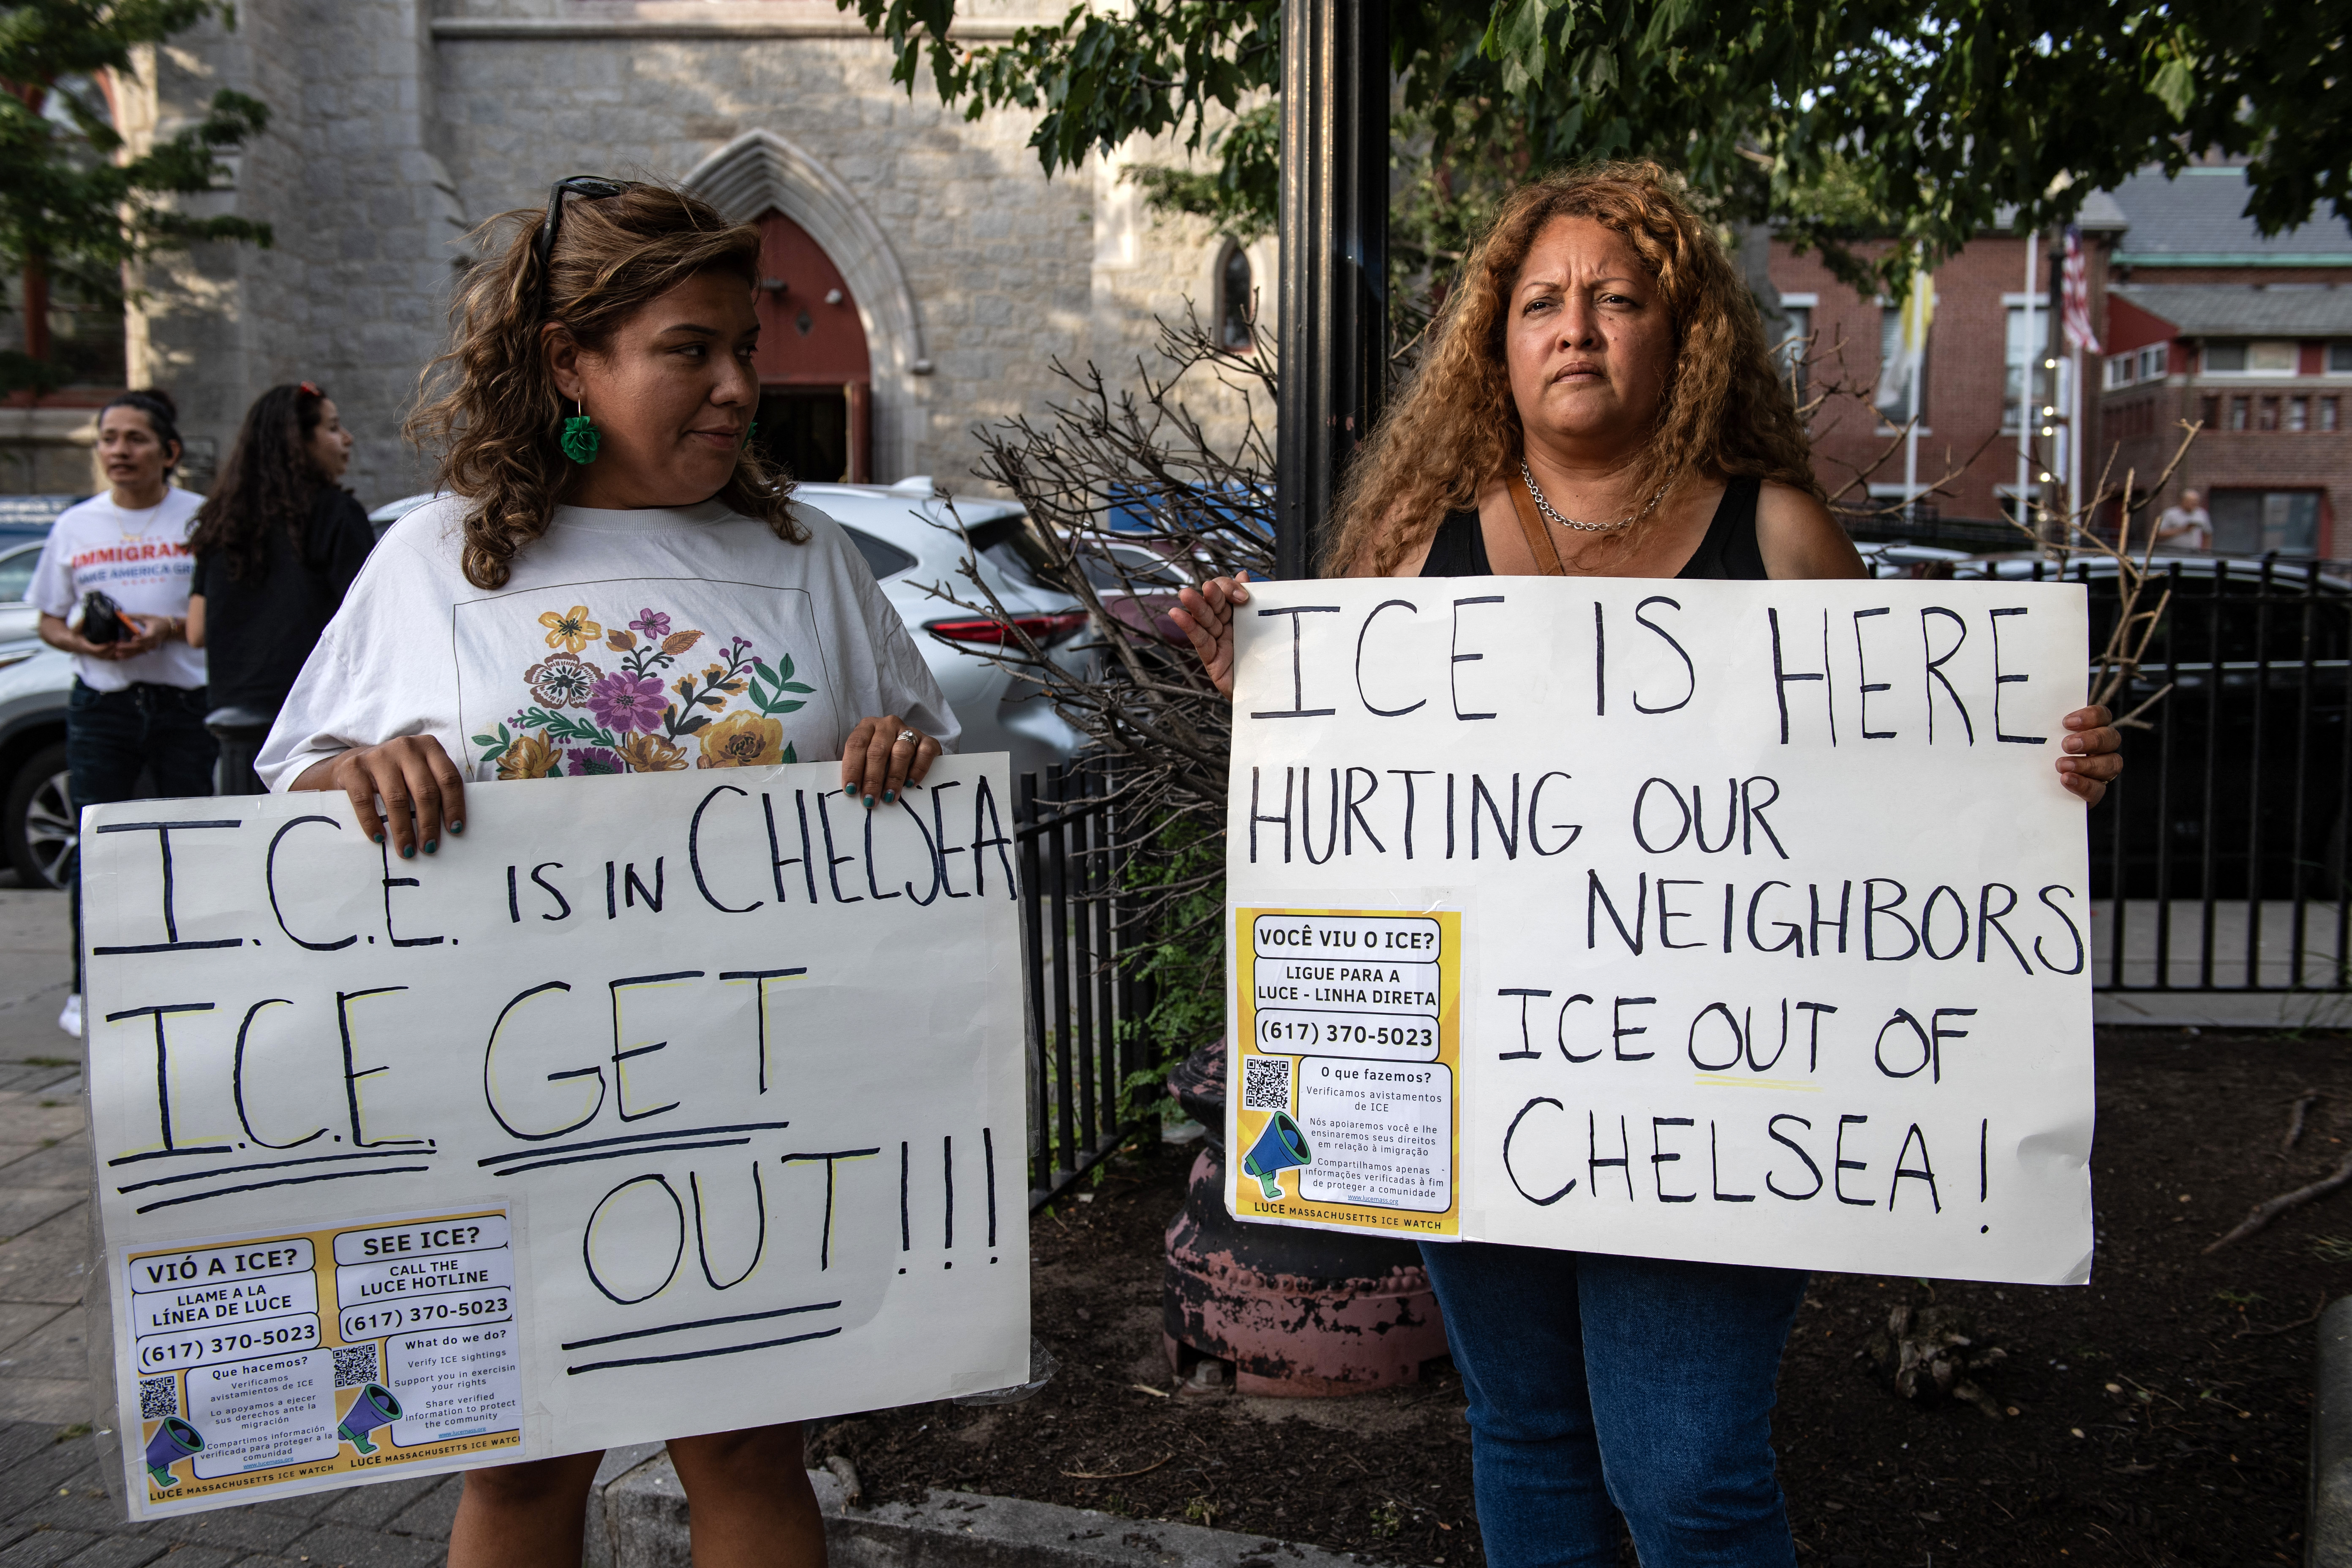 IMMIGRAN
MAKE AMERICA GRE
I.C.E. IS IN CHELSEA
I.C.E. GET
OUT!!!
VIÓ A ICE?
LLAME A LA
LÍNEA DE LUCE
(617) 370-5023
Que hacemos?
Verificamos
avistamientos de ICE
Lo apoyamos a ejecer
sus derechos ante la
migración
Compartimos información
verificada para proteger a la
comunidad
www.lucemass.org
LUCE MASSACHUSETTS ICE WATCH
SEE ICE?
CALL THE
LUCE HOTLINE
(617) 370-5023
What do we do?
Verify ICE sightings
Support you in exercisin
your rights
Share verified
information to protect
the community
www.lucemass.org
LUCE MASSACHUSETTS ICE WATC
ICE IS HERE
HURTING OUR
NEIGHBORS
ICE OUT OF
CHELSEA!
VOCÊ VIU O ICE?
LIGUE PARA A
LUCE - LINHA DIRETA
(617) 370-5023
O que fazemos?
Verificamos avistamentos
de ICE
Nós apoiaremos você e lhe
ensinaremos seus direitos
em relação à imigração
Compartilhamos apenas
informações verificadas à fim
de proteger a comunidade
www.lucemass.org
LUCE MASSACHUSETTS ICE WATCH